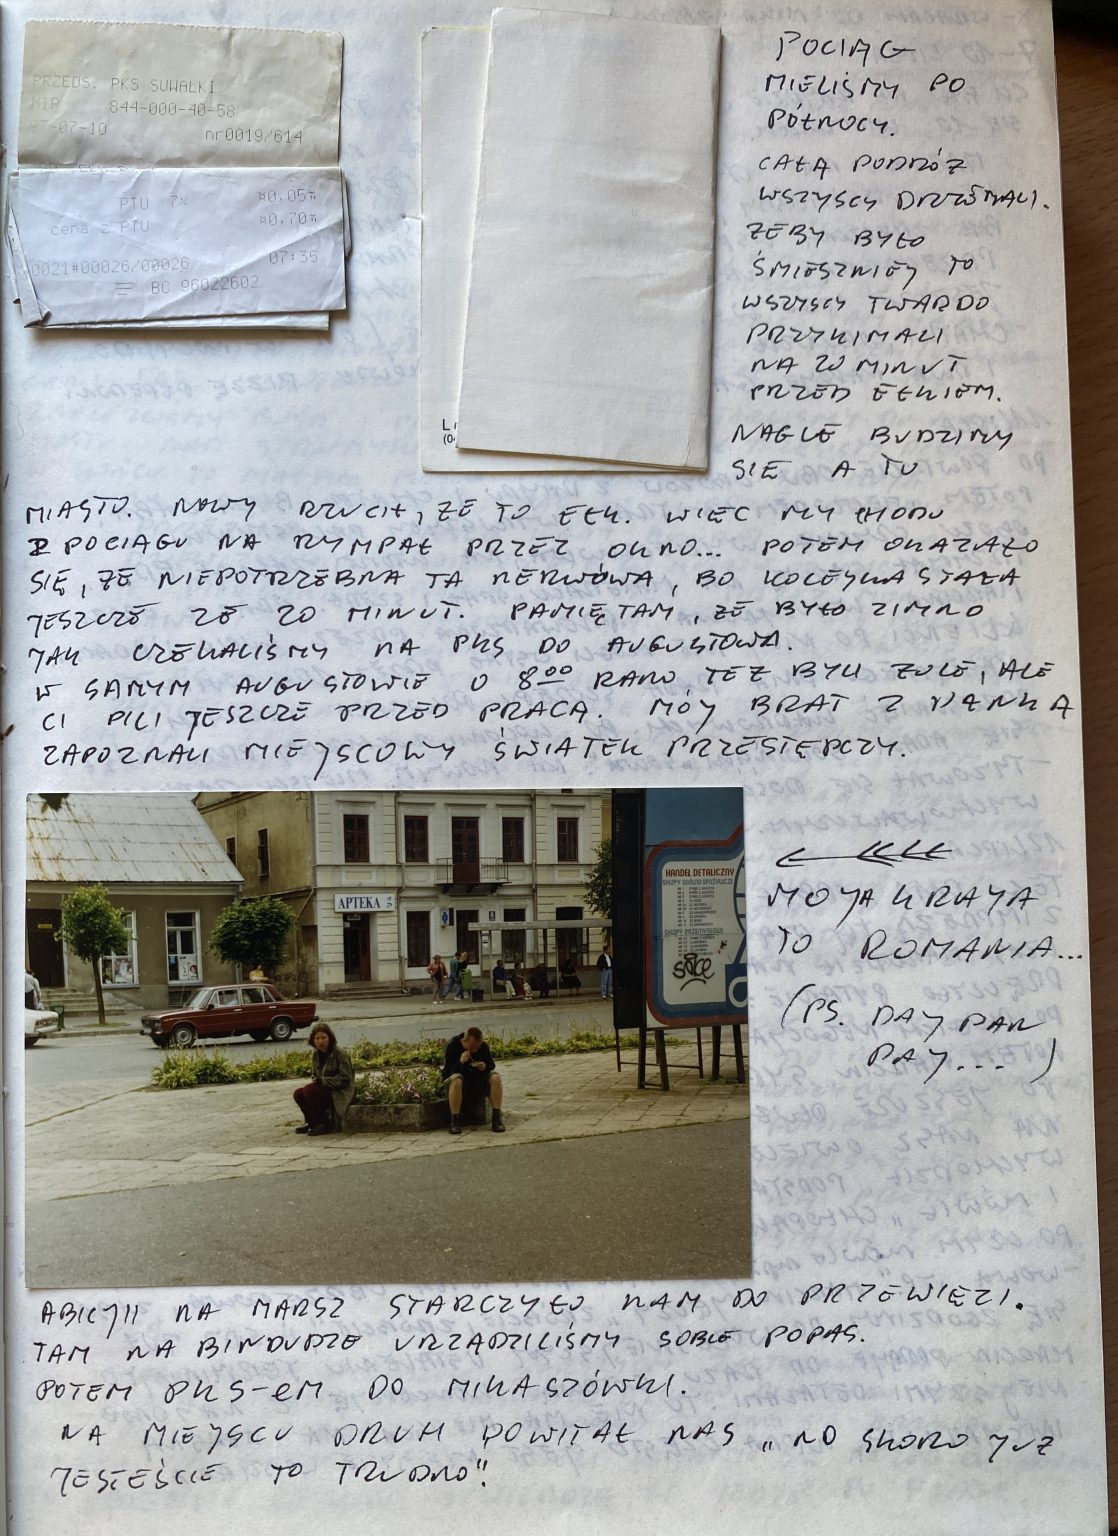 PRZEDS. PKS SUWAŁKI
NIP 844-000-40-58
97-07-10 nr0019/614
PTU 7% ¤0,05
cena z PTU ¤0,70
0021#00026/00026 07:35
BC 96022602
POCIĄG
MIELIŚMY PO
PÓŁNOCY.
CAŁĄ PODRÓŻ
WSZYSCY DRZEMALI.
ŻEBY BYŁO
ŚMIESZNIEJ TO
WSZYSCY TWARDO
PRZYKIMALI
NA 20 MINUT
PRZED EŁKIEM.
NAGLE BUDZIMY
SIĘ A TU
MIASTO. NOWY RZUCIŁ, ŻE TO EŁK. WIĘC MY CHODU
Z POCIĄGU NA RYMPAŁ PRZEZ OKNO... POTEM OKAZAŁO
SIĘ, ŻE NIEPOTRZEBNA TA NERWÓWA, BO KOLEJKA STAŁA
JESZCZE ZE 20 MINUT. PAMIĘTAM, ŻE BYŁO ZIMNO
JAK CZEKALIŚMY NA PKS DO AUGUSTOWA.
W SAMYM AUGUSTOWIE O 8⁰⁰ RANO TEŻ BYLI ŻULE, ALE
CI PILI JESZCZE PRZED PRACĄ. MÓJ BRAT Z
ZAPOZNALI MIEJSCOWY ŚWIATEK PRZESTĘPCZY.
APTEKA
HANDEL DETALICZNY
SKLEPY OGÓLNO-SPOŻYWCZE
SKLEPY PRZEMYSŁOWE
MOJA KRAJA
TO ROMANIA...
(PS. DAJ PAN
PAJ... )
AMBICJI NA MARSZ STARCZYŁO NAM DO PRZEWIĘZI.
TAM NA BINDUDZE URZĄDZILIŚMY SOBIE POPAS.
POTEM PKS-eM DO MIKASZÓWKI.
NA MIEJSCU DRUH POWITAŁ NAS „NO SKORO JUŻ
JESTEŚCIE TO TRUDNO".